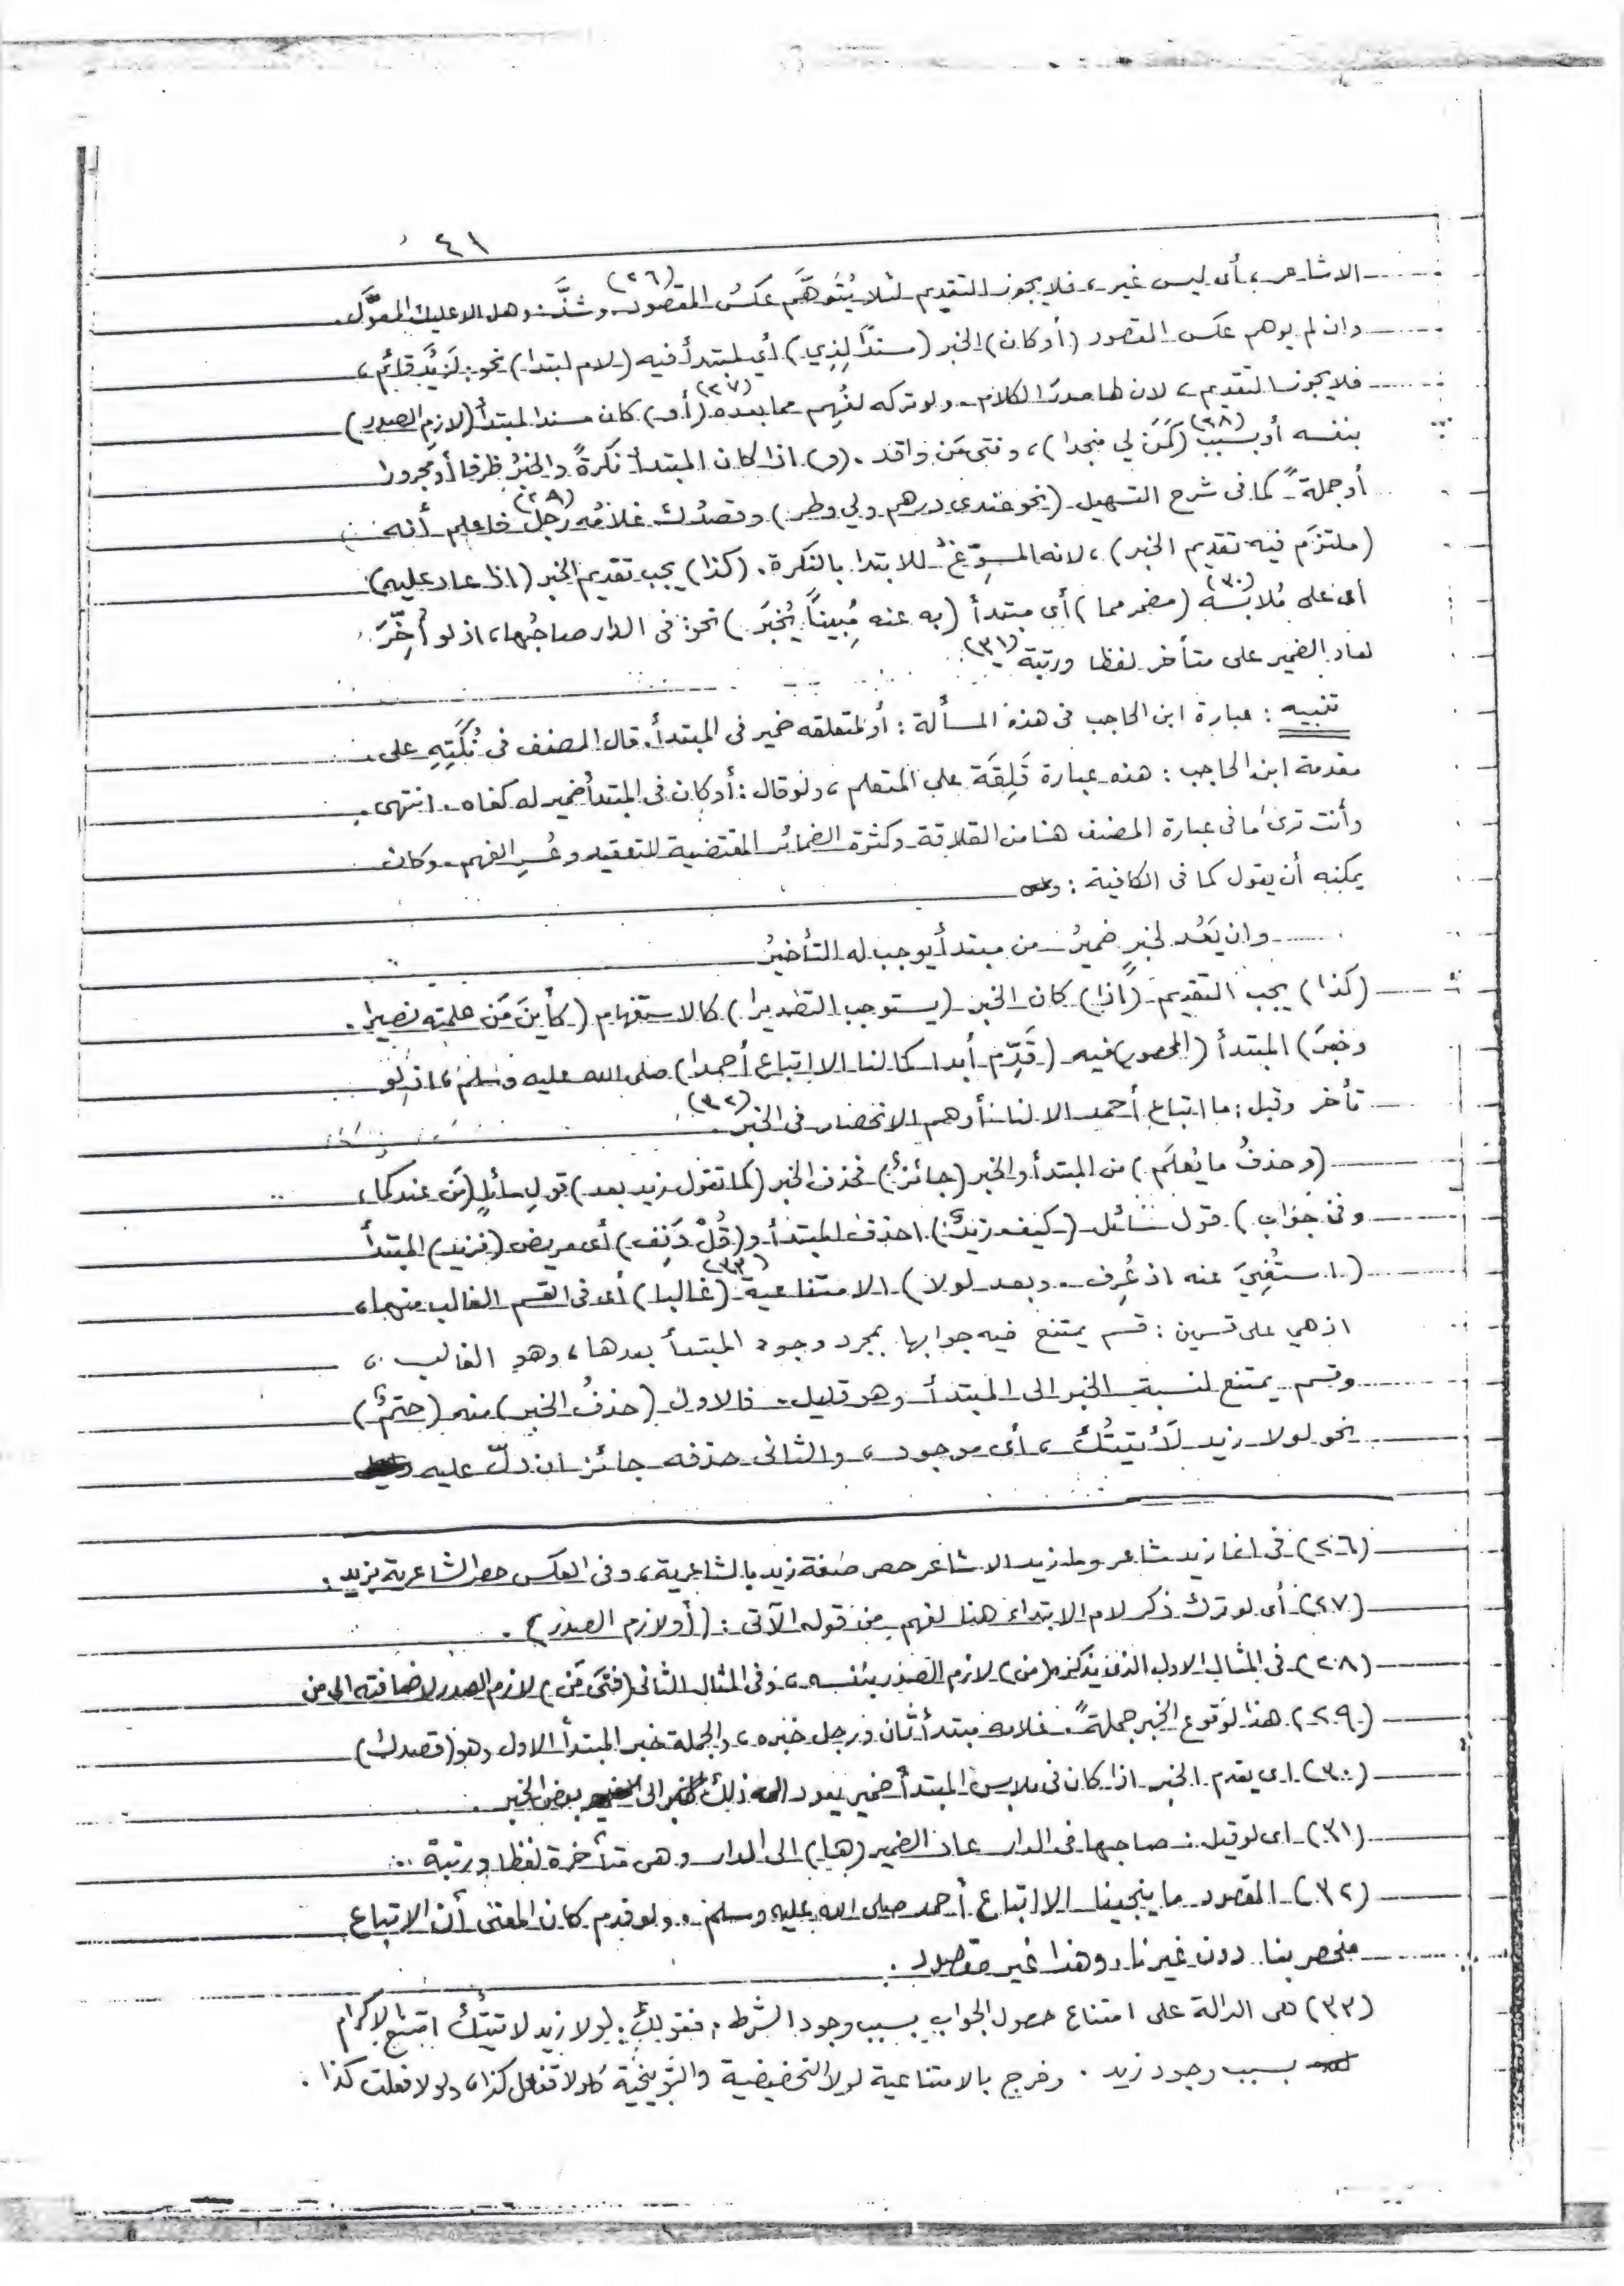 ٤١
الا شاعر، أى ليس غير، فلا يجوز التقديم لئلا يُتَوهَّم عكسُ المقصود (٢٦) وشذَّ: وهل الا عليك المعوَّل.
وان لم يوهم عكس المقصود (أو كان) الخبر (مسندًا لِذِي) أي لمبتدأ فيه (لام ابتدا) نحو: لَزيدٌ قائم،
فلا يجوز التقديم، لان لها صدرَ الكلام. ولو تركه لفُهِم مما بعده (٢٧) (أو) كان مسندا لمبتدأ (لازم الصدر)
بنفسه أو بسبب (٢٨) (كَمَن لي منجدا)، وفتى مَن وافد. (و) اذا كان المبتدأ نكرةً والخبرُ ظرفا أو مجرورا
أو جملةً كما فى شرح التسهيل (نحو عندى درهم ولي وطر) وقصدُك غلامُه رجل (٢٩) فاعلم أنه
(ملتزَم فيه تقديم الخبر)، لانه المسوِّغُ للابتدا بالنكرة. (كذا) يجب تقديم الخبر (اذا عاد عليه)
أى على مُلابَسه (٣٠) (مضمر مما) أى مبتدأ (به عنه مُبيناً يُخبَر) نحو: فى الدار صاحبُها، اذ لو أُخِّرَ
لعاد الضمير على متأخر لفظا ورتبة (٣١).
تنبيه: عبارة ابن الحاجب فى هذه المسألة: أو لمتعلقه ضمير فى المبتدأ. قال المصنف فى نُكَتِهِ على
مقدمة ابن الحاجب: هذه عبارة قَلِقَة على المتعلم، ولو قال: أو كان فى المبتدأ ضمير له كفاه. انتهى.
وأنت ترى ما فى عبارة المصنف هنا من القلاقة وكثرة الضمائر المقتضية للتعقيد وعُسرِ الفهم. وكان
يمكنه أن يقول كما فى الكافية:
وان يَعُد لخبرٍ ضميرُ من مبتدأ يوجب له التأخيرُ
(كذا) يجب التقديم (اذا) كان الخبر (يستوجب التصديرا) كالاستفهام (كأينَ مَن علمته نصيرا.
وخبرَ) المبتدأ (المحصور) فيه (قدِّم أبدا كما لنا الا اتباع أحمدا) صلى الله عليه وسلم، اذ لو
تأخر وقيل: ما اتباع أحمد الا لنا أوهم الانحصار فى الخبر (٣٢).
(وحذفُ ما يُعلَم) من المبتدأ والخبر (جائزٌ) فحذف الخبر (كما تقول زيد بعد) قولِ سائلٍ (مَن عندكما،
وفى جواب) قول سائل (كيف زيدٌ) احذف المبتدأ و(قُلْ دَنِف) أى مريض (فزيد) المبتدأ
(استُغنِيَ عنه اذ عُرِف. وبعد لولا) الامتناعية (٣٣) (غالبا) أى فى القسم الغالب منهما،
اذ هي على قسمين: قسم يمتنع فيه جوابها بمجرد وجود المبتدأ بعدها، وهو الغالب،
وقسم يمتنع لنسبة الخبر الى المبتدأ وهو قليل. فالاول (حذفُ الخبر) منه (حتمٌ)
نحو لولا زيد لأتيتُك، أى موجود، والثانى حذفه جائز ان دلّ عليه
(٢٦) فى انما زيد شاعر وما زيد الا شاعر حصر صفة زيد بالشاعرية، وفى العكس حصر الشاعرية بزيد.
(٢٧) أى لو ترك ذكر لام الابتداء هنا لفهم من قوله الآتى: (أو لازم الصدر).
(٢٨) فى المثال الاول الذى يذكره (من) لازم الصدر بنفسه، وفى المثال الثانى (فتى مَن) لازم الصدر لاضافته الى من
(٢٩) هذا لوقوع الخبر جملةً. غلامه مبتدأ ثان ورجل خبره، والجملة خبر المبتدأ الاول وهو (قصدك)
(٣٠) اى يقدم الخبر اذا كان فى ملابس المبتدأ ضمير يعود ذلك الضمير الى بعض الخبر.
(٣١) اى لو قيل: صاحبها فى الدار عاد الضمير (ها) الى الدار وهى متأخرة لفظا ورتبة.
(٣٢) المقصود ما ينجينا الا اتباع أحمد صلى الله عليه وسلم. ولو قدم كان المعنى أن الاتباع
منحصر بنا دون غيرنا، وهذا غير مقصود.
(٣٣) هى الدالة على امتناع حصول الجواب بسبب وجود الشرط، فقولك: لولا زيد لاتيتُك امتنع الاكرام
بسبب وجود زيد. وخرج بالامتناعية لولا التحضيضية والتوبيخية كلولا تفعل كذا، ولولا فعلت كذا.